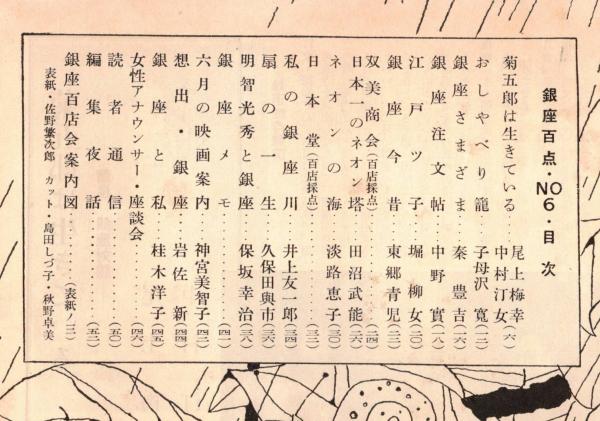 銀座百点・NO6・目次
菊五郎は生きている……尾上梅幸 中村汀女(六)
おしゃべり籠……子母沢寛(一二)
銀座さまざま……秦豊吉(一六)
銀座注文帖……中野實(一八)
江戸ツ子……堀柳女(二〇)
銀座今昔……東郷青児(二二)
双美商会(百店採点)……(二四)
日本一のネオン塔……田沼武能(二六)
ネオンの海……淡路恵子(三〇)
日本堂(百店採点)……(三二)
私の銀座川……井上友一郎(三四)
扇の一生……久保田與市(三六)
明智光秀と銀座……保坂幸治(三八)
銀座メモ……(四一)
六月の映画案内……神宮美智子(四二)
想出・銀座……岩佐新(四四)
銀座と私……桂木洋子(四五)
女性アナウンサー・座談会……(四六)
読者通信……(五〇)
編集夜話……(五二)
銀座百店会案内図……(表紙ノ三)
表紙・佐野繁次郎 カット・島田しづ子・秋野卓美